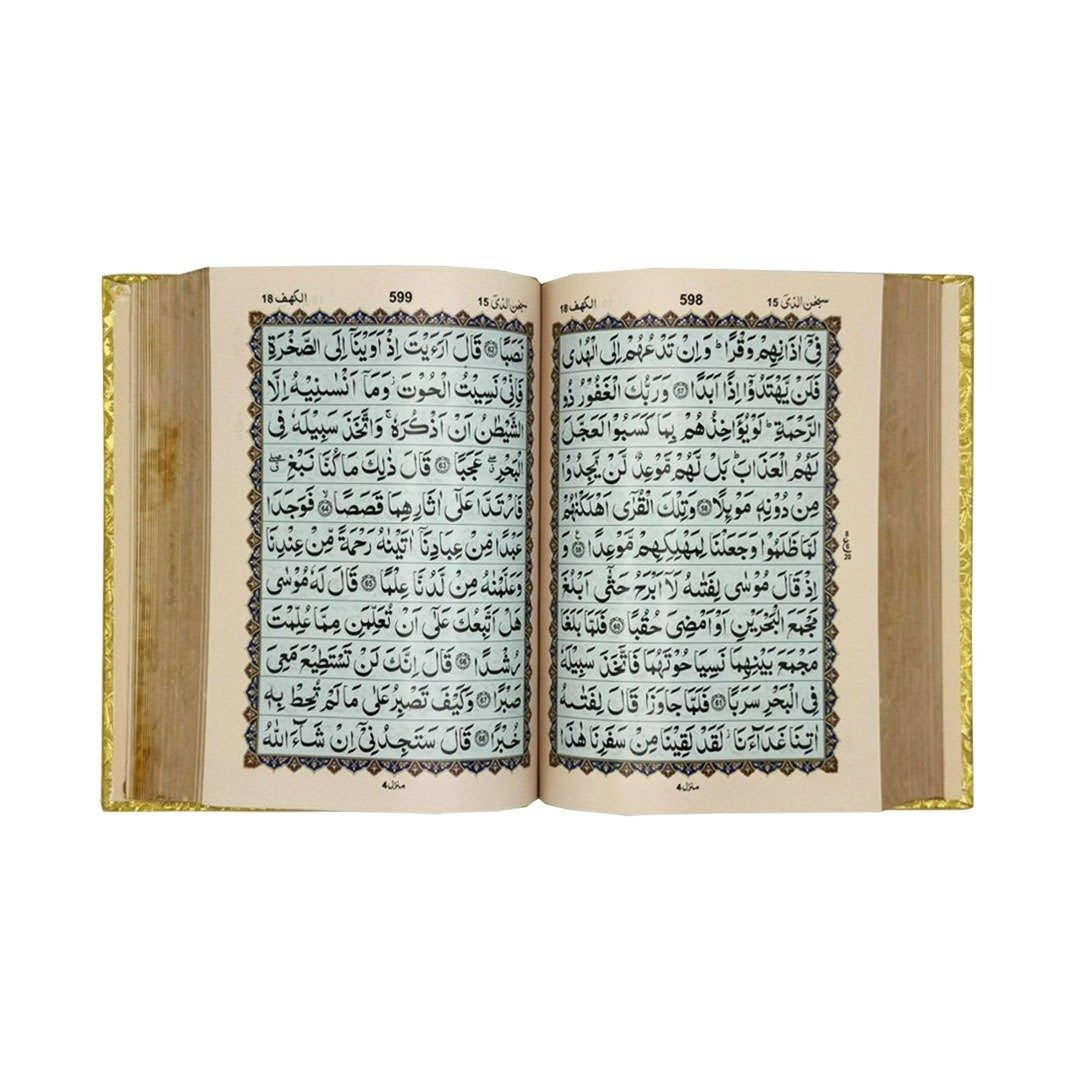 سبحٰن الذی 15
598
الكهف 18
فِیْۤ اٰذَانِهِمْ وَقْرًا ؕ وَاِنْ تَدْعُهُمْ اِلَی الْهُدٰی
فَلَنْ یَّهْتَدُوْۤا اِذًا اَبَدًا ۝57 وَرَبُّكَ الْغَفُوْرُ ذُو
الرَّحْمَةِ ؕ لَوْ یُؤَاخِذُهُمْ بِمَا كَسَبُوْا لَعَجَّلَ
لَهُمُ الْعَذَابَ ؕ بَلْ لَّهُمْ مَّوْعِدٌ لَّنْ یَّجِدُوْا
مِنْ دُوْنِهٖ مَوْئِلًا ۝58 وَتِلْكَ الْقُرٰۤی اَهْلَكْنٰهُمْ
لَمَّا ظَلَمُوْا وَجَعَلْنَا لِمَهْلِكِهِمْ مَّوْعِدًا ۝59 وَ
اِذْ قَالَ مُوْسٰی لِفَتٰىهُ لَاۤ اَبْرَحُ حَتّٰۤی اَبْلُغَ
مَجْمَعَ الْبَحْرَیْنِ اَوْ اَمْضِیَ حُقُبًا ۝60 فَلَمَّا بَلَغَا
مَجْمَعَ بَیْنِهِمَا نَسِیَا حُوْتَهُمَا فَاتَّخَذَ سَبِیْلَهٗ
فِی الْبَحْرِ سَرَبًا ۝61 فَلَمَّا جَاوَزَا قَالَ لِفَتٰىهُ
اٰتِنَا غَدَآءَنَا ؗ لَقَدْ لَقِیْنَا مِنْ سَفَرِنَا هٰذَا
منزل 4
سبحٰن الذی 15
599
الكهف 18
نَصَبًا ۝62 قَالَ اَرَءَیْتَ اِذْ اَوَیْنَاۤ اِلَی الصَّخْرَةِ
فَاِنِّیْ نَسِیْتُ الْحُوْتَ ؗ وَمَاۤ اَنْسٰىنِیْهُ اِلَّا
الشَّیْطٰنُ اَنْ اَذْكُرَهٗ ۚ وَاتَّخَذَ سَبِیْلَهٗ فِی
الْبَحْرِ ۖۗ عَجَبًا ۝63 قَالَ ذٰلِكَ مَا كُنَّا نَبْغِ ۖۗ
فَارْتَدَّا عَلٰۤی اٰثَارِهِمَا قَصَصًا ۝64 فَوَجَدَا
عَبْدًا مِّنْ عِبَادِنَاۤ اٰتَیْنٰهُ رَحْمَةً مِّنْ عِنْدِنَا
وَعَلَّمْنٰهُ مِنْ لَّدُنَّا عِلْمًا ۝65 قَالَ لَهٗ مُوْسٰی
هَلْ اَتَّبِعُكَ عَلٰۤی اَنْ تُعَلِّمَنِ مِمَّا عُلِّمْتَ
رُشْدًا ۝66 قَالَ اِنَّكَ لَنْ تَسْتَطِیْعَ مَعِیَ
صَبْرًا ۝67 وَكَیْفَ تَصْبِرُ عَلٰی مَا لَمْ تُحِطْ بِهٖ
خُبْرًا ۝68 قَالَ سَتَجِدُنِیْۤ اِنْ شَآءَ اللّٰهُ
منزل 4